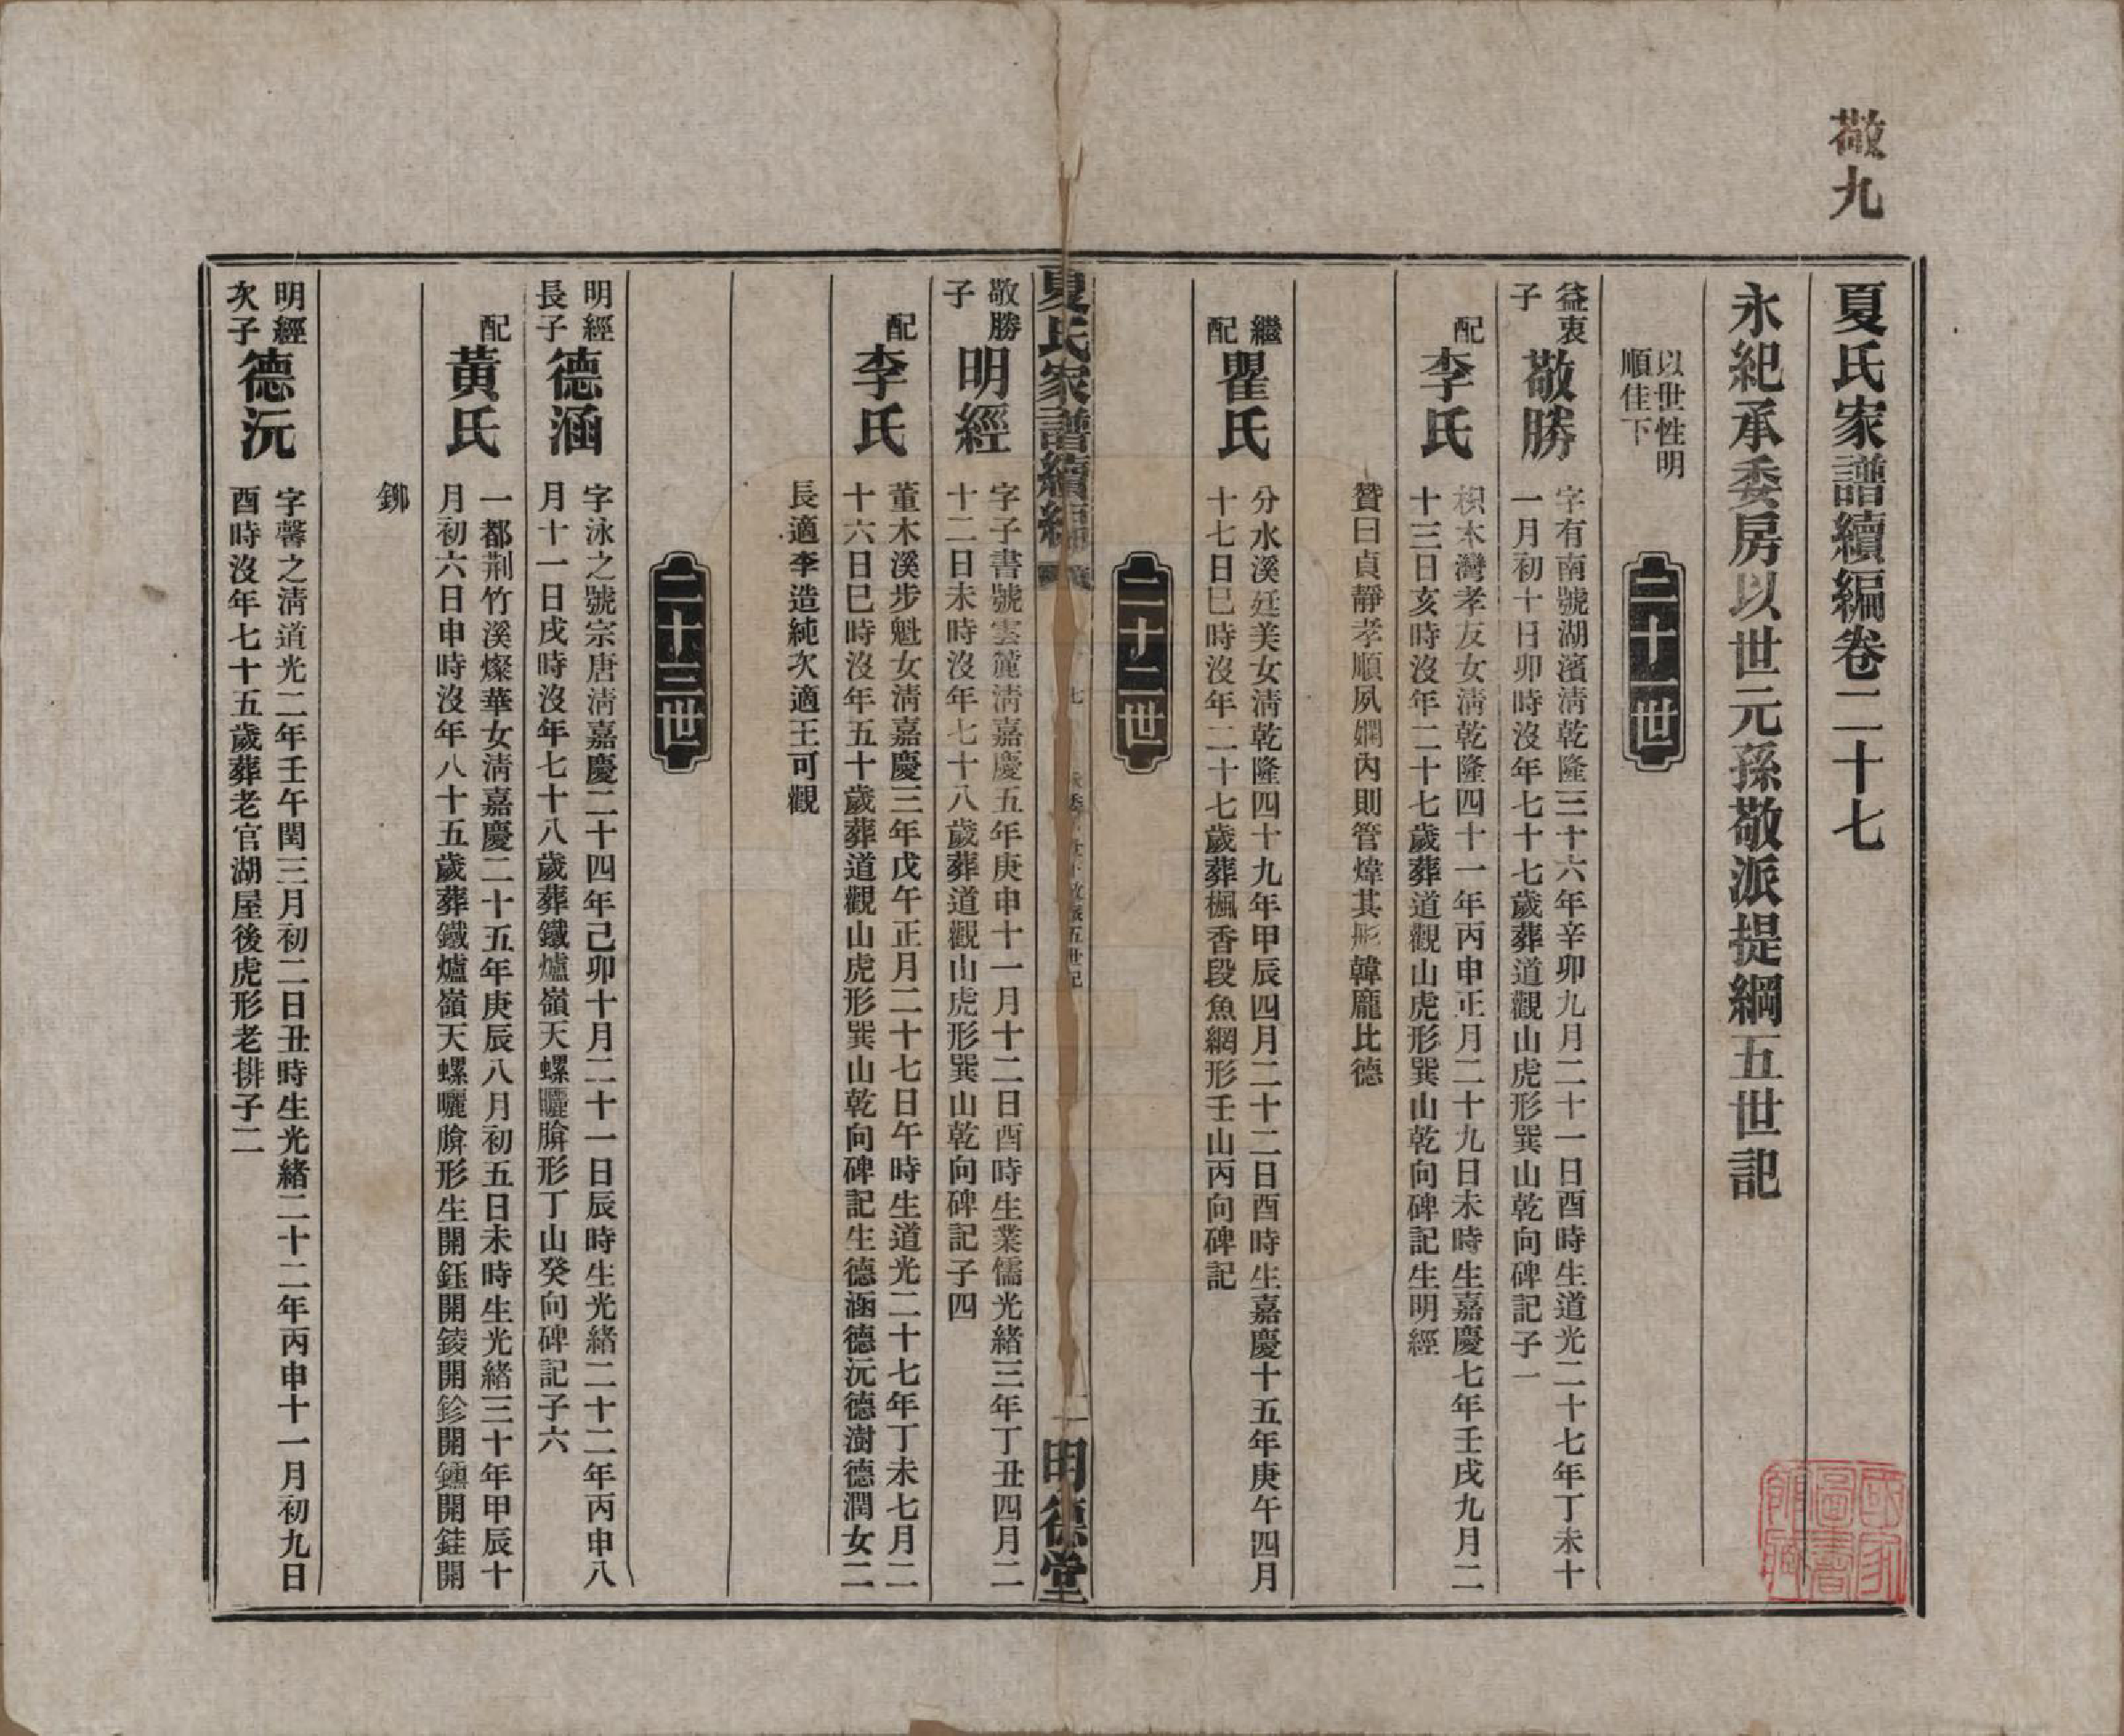 敬九
夏氏家譜續編卷二十七
永紀承委房以世元孫敬派提綱五世記
以世性明
順佳下
二十一世
益衷
子
敬勝
字有南號湖濱淸乾隆三十六年辛卯九月二十一日酉時生道光二十七年丁未十
一月初十日卯時沒年七十七歲葬道觀山虎形巽山乾向碑記子一
配
李氏
枳木灣孝友女淸乾隆四十一年丙申正月二十九日未時生嘉慶七年壬戌九月二
十三日亥時沒年二十七歲葬道觀山虎形巽山乾向碑記生明經
贊曰貞靜孝順夙嫻內則管煒其彤韓龐比德
繼
配
瞿氏
分水溪廷美女淸乾隆四十九年甲辰四月二十二日酉時生嘉慶十五年庚午四月
十七日巳時沒年二十七歲葬楓香段魚網形壬山丙向碑記
二十二世
夏氏家譜續編
五世記
一
明德堂
敬勝
子
明經
字子書號雲簏淸嘉慶五年庚申十一月十二日酉時生業儒光緒三年丁丑四月二
十二日未時沒年七十八歲葬道觀山虎形巽山乾向碑記子四
配
李氏
董木溪步魁女淸嘉慶三年戊午正月二十七日午時生道光二十七年丁未七月二
十六日巳時沒年五十歲葬道觀山虎形巽山乾向碑記生德涵德沅德澍德潤女二
長適李造純次適王可觀
二十三世
明經
長子
德涵
字泳之號宗唐淸嘉慶二十四年己卯十月二十一日辰時生光緒二十二年丙申八
月十一日戌時沒年七十八歲葬鐵爐嶺天螺曬腤形丁山癸向碑記子六
配
黃氏
一都荆竹溪燦華女淸嘉慶二十五年庚辰八月初五日未時生光緒三十年甲辰十
月初六日申時沒年八十五歲葬鐵爐嶺天螺曬腤形生開鈺開錂開鉁開鑂開銈開
鉚
明經
次子
德沅
字馨之淸道光二年壬午閏三月初二日丑時生光緒二十二年丙申十一月初九日
酉時沒年七十五歲葬老官湖屋後虎形老排子二
國家
圖書
館藏